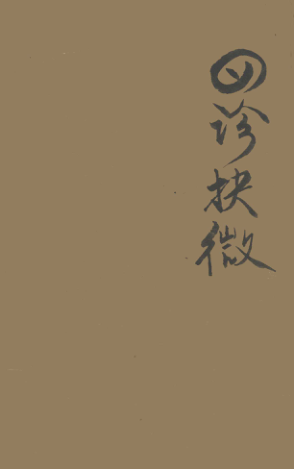 四诊抉微